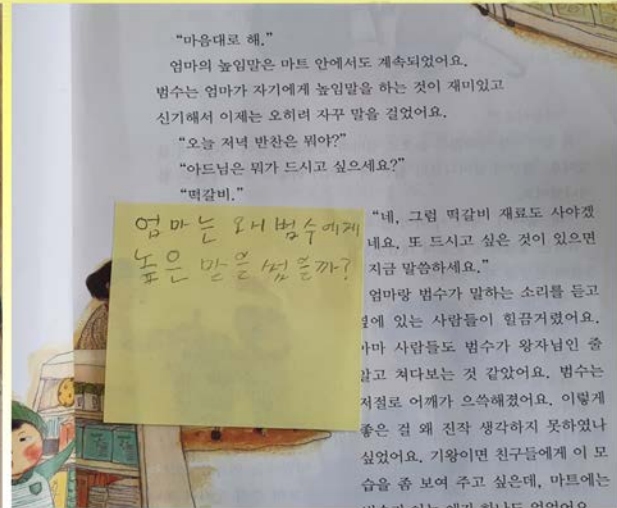 “마음대로 해.”
엄마의 높임말은 마트 안에서도 계속되었어요.
범수는 엄마가 자기에게 높임말을 하는 것이 재미있고
신기해서 이제는 오히려 자꾸 말을 걸었어요.
“오늘 저녁 반찬은 뭐야?”
“아드님은 뭐가 드시고 싶으세요?”
“떡갈비.”
엄마는 왜 범수에게
높은 말을 썼을까?
“네, 그럼 떡갈비 재료도 사야겠
네요. 또 드시고 싶은 것이 있으면
지금 말씀하세요.”
엄마랑 범수가 말하는 소리를 듣고
옆에 있는 사람들이 힐끔거렸어요.
아마 사람들도 범수가 왕자님인 줄
알고 쳐다보는 것 같았어요. 범수는
저절로 어깨가 으쓱해졌어요. 이렇게
좋은 걸 왜 진작 생각하지 못하였나
싶었어요. 기왕이면 친구들에게 이 모
습을 좀 보여 주고 싶은데, 마트에는